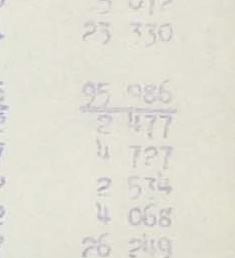 23 330
95 986
2 477
4 727
2 534
4 068
26 249